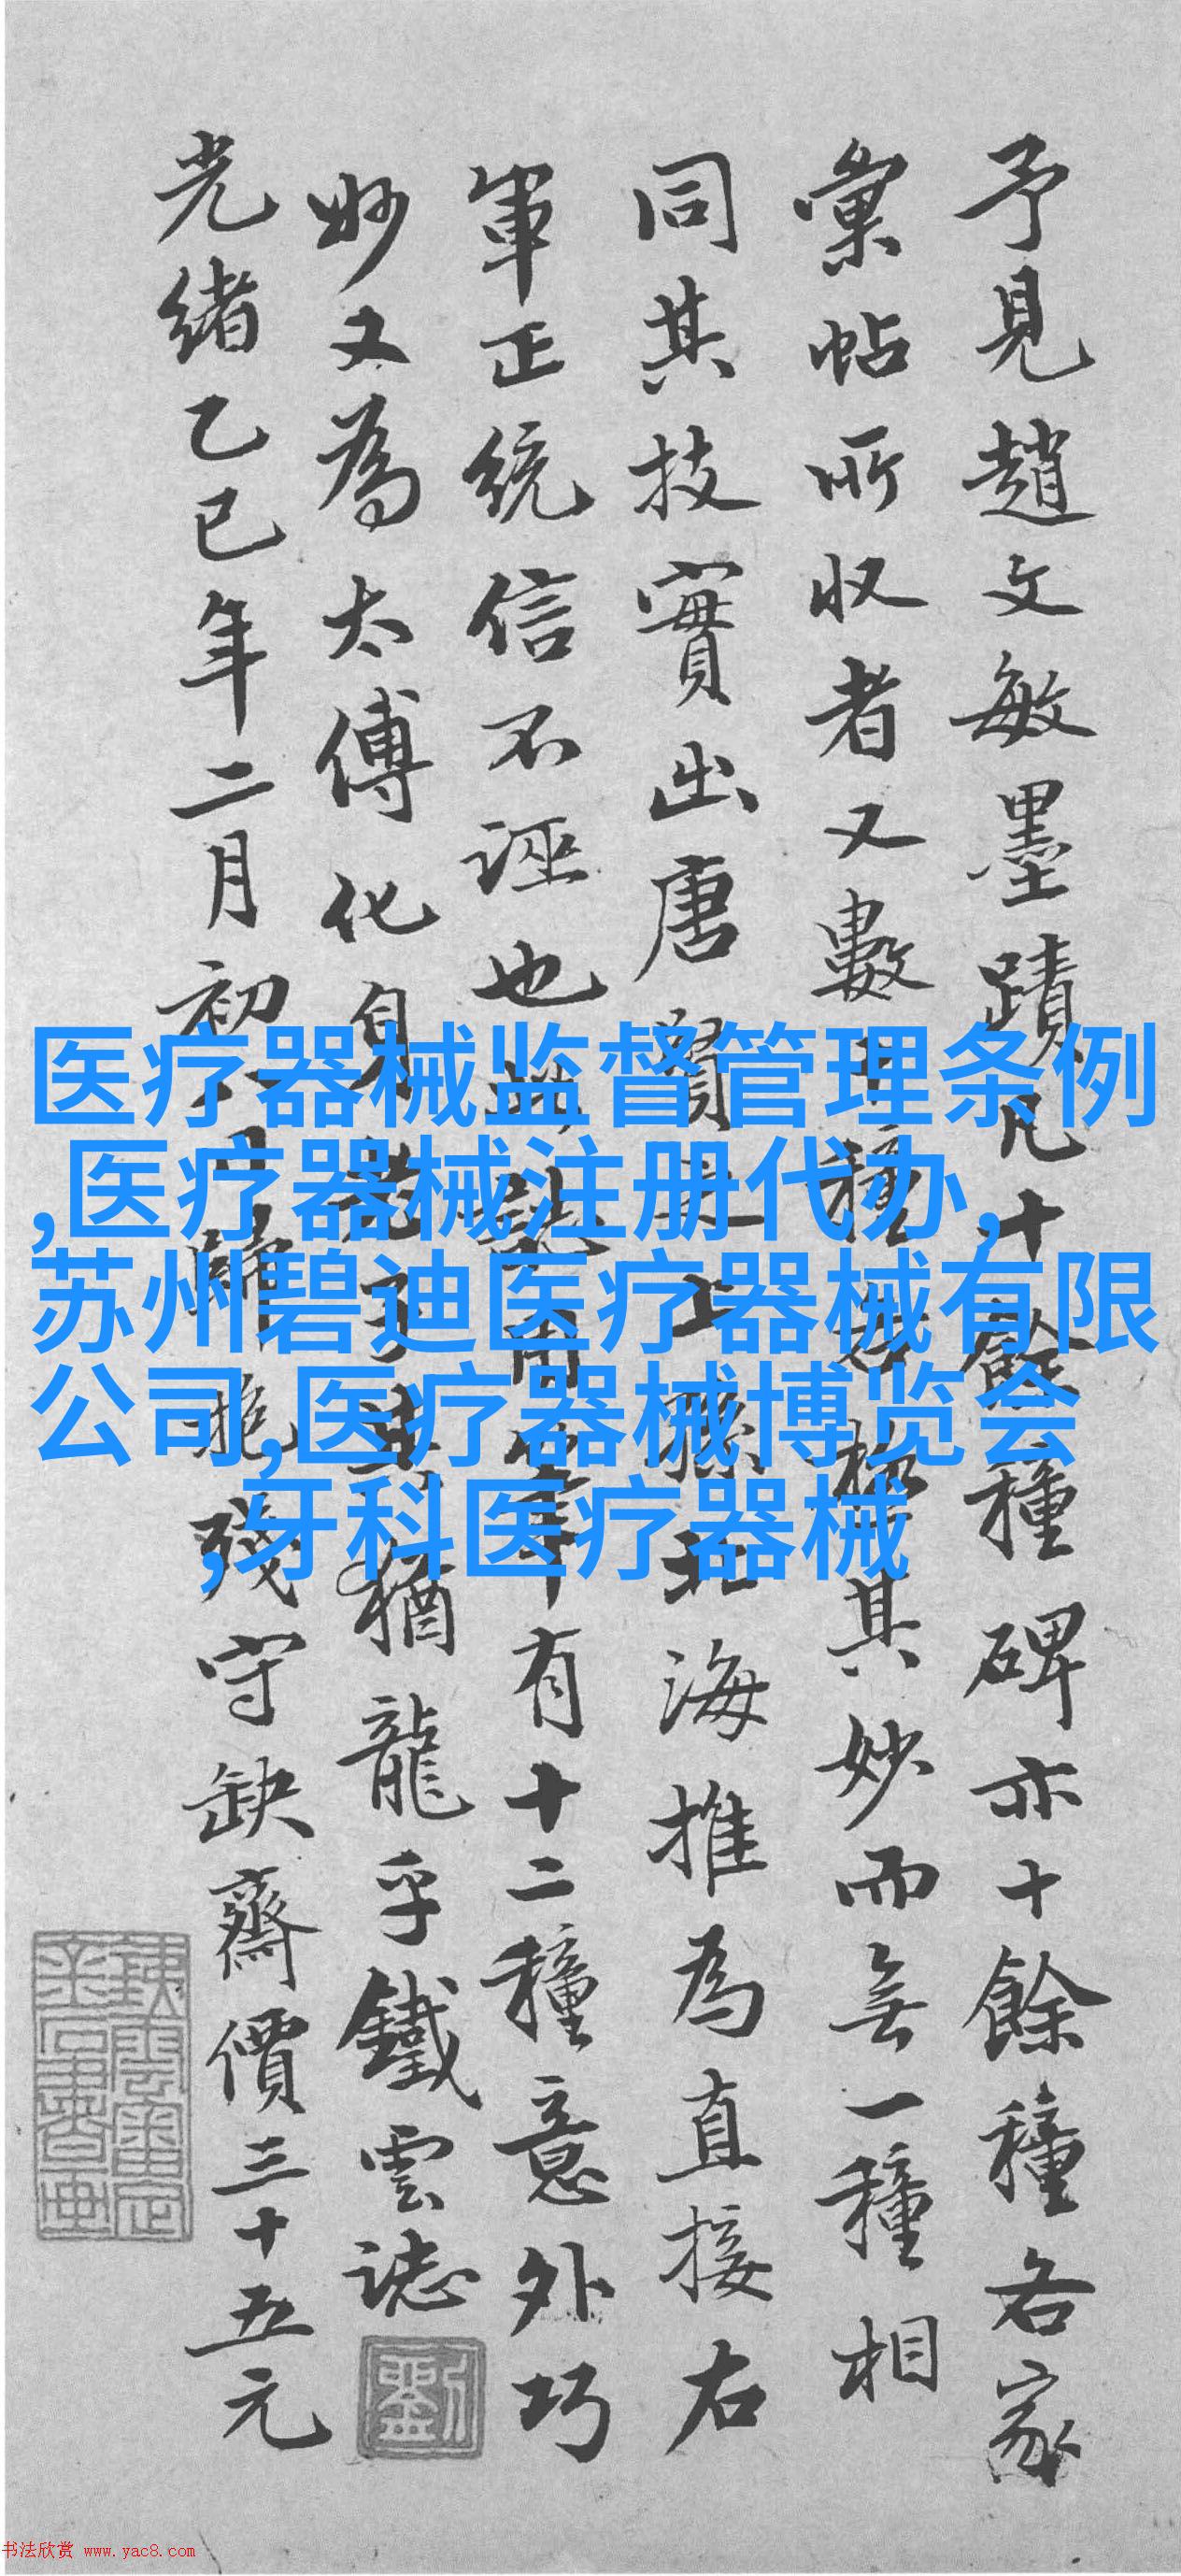 予見趙文敏墨蹟凡十餘種碑亦十餘種各家
彙帖所收者又數十種種各極其妙而無一種相
同其技實出唐賢之上孫北海推為直接右
軍正統信不誣也此號周年有十二種意外巧
妙又為太傅化身老子其猶龍乎鐵雲誌
光緒乙巳年二月初
抱殘守缺齋價三十五元
医疗器械监督管理条例
,医疗器械注册代办,
苏州碧迪医疗器械有限
公司,医疗器械博览会
,牙科医疗器械
劉
书法欣赏 www.yac8.com